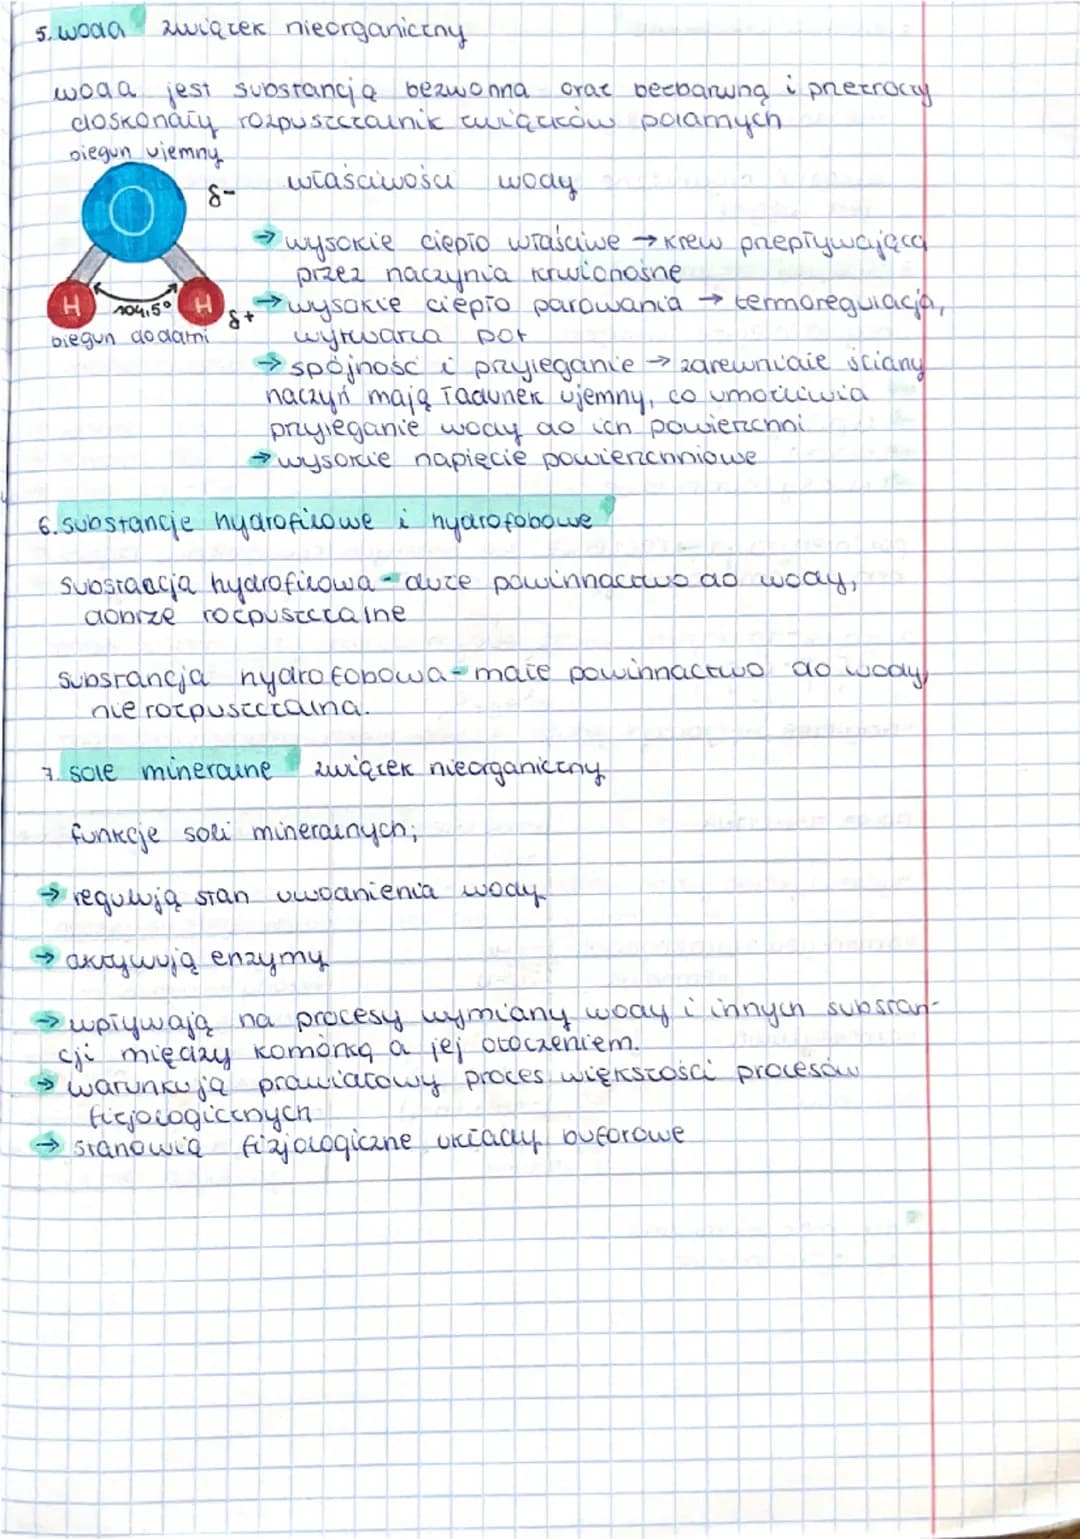 5. woda związek nieorganiczny
woda jest substancją bezwonna oraz bezbarwną i przezroczy
doskonały rozpuszczalnik związków polarnych
biegun ujemny
δ-
O
H
104,5°
H
δ+
biegun dodatni
właściwości wody
→ wysokie ciepło właściwe → krew przepływająca
przez naczynia krwionośne
→ wysokie ciepło parowania → termoregulacja,
wytwarza pot
→ spójność i przyleganie → zdrewniałe ściany
naczyń mają ładunek ujemny, co umożliwia
przyleganie wody do ich powierzchni
→ wysokie napięcie powierzchniowe
6. substancje hydrofilowe i hydrofobowe
substancja hydrofilowa - duże powinnactwo do wody,
dobrze rozpuszczalne
substancja hydrofobowa - małe powinnactwo do wody,
nierozpuszczalna.
7. sole mineralne związek nieorganiczny
funkcje soli mineralnych;
→ regulują stan uwodnienia wody
→ aktywują enzymy
→ wpływają na procesy wymiany wody i innych substan-
cji między komórką a jej otoczeniem.
→ warunkują prawidłowy proces większości procesów
fizjologicznych
→ stanowią fizjologiczne układy buforowe